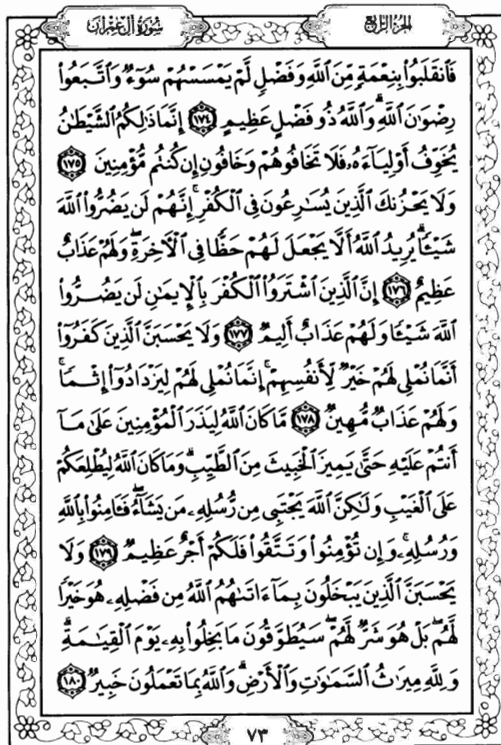 الجزء الرابع سورة آل عمران
فَٱنقَلَبُوا۟ بِنِعْمَةٍ مِّنَ ٱللَّهِ وَفَضْلٍ لَّمْ يَمْسَسْهُمْ سُوٓءٌ وَٱتَّبَعُوا۟
رِضْوَٰنَ ٱللَّهِ ۗ وَٱللَّهُ ذُو فَضْلٍ عَظِيمٍ ١٧٤ إِنَّمَا ذَٰلِكُمُ ٱلشَّيْطَٰنُ
يُخَوِّفُ أَوْلِيَآءَهُۥ فَلَا تَخَافُوهُمْ وَخَافُونِ إِن كُنتُم مُّؤْمِنِينَ ١٧٥
وَلَا يَحْزُنكَ ٱلَّذِينَ يُسَٰرِعُونَ فِى ٱلْكُفْرِ ۚ إِنَّهُمْ لَن يَضُرُّوا۟ ٱللَّهَ
شَيْـًٔا ۗ يُرِيدُ ٱللَّهُ أَلَّا يَجْعَلَ لَهُمْ حَظًّا فِى ٱلْـَٔاخِرَةِ ۖ وَلَهُمْ عَذَابٌ
عَظِيمٌ ١٧٦ إِنَّ ٱلَّذِينَ ٱشْتَرَوُا۟ ٱلْكُفْرَ بِٱلْإِيمَٰنِ لَن يَضُرُّوا۟
ٱللَّهَ شَيْـًٔا وَلَهُمْ عَذَابٌ أَلِيمٌ ١٧٧ وَلَا يَحْسَبَنَّ ٱلَّذِينَ كَفَرُوٓا۟
أَنَّمَا نُمْلِى لَهُمْ خَيْرٌ لِّأَنفُسِهِمْ ۚ إِنَّمَا نُمْلِى لَهُمْ لِيَزْدَادُوٓا۟ إِثْمًا ۚ
وَلَهُمْ عَذَابٌ مُّهِينٌ ١٧٨ مَّا كَانَ ٱللَّهُ لِيَذَرَ ٱلْمُؤْمِنِينَ عَلَىٰ مَآ
أَنتُمْ عَلَيْهِ حَتَّىٰ يَمِيزَ ٱلْخَبِيثَ مِنَ ٱلطَّيِّبِ ۗ وَمَا كَانَ ٱللَّهُ لِيُطْلِعَكُمْ
عَلَى ٱلْغَيْبِ وَلَٰكِنَّ ٱللَّهَ يَجْتَبِى مِن رُّسُلِهِۦ مَن يَشَآءُ ۖ فَـَٔامِنُوا۟ بِٱللَّهِ
وَرُسُلِهِۦ ۚ وَإِن تُؤْمِنُوا۟ وَتَتَّقُوا۟ فَلَكُمْ أَجْرٌ عَظِيمٌ ١٧٩ وَلَا
يَحْسَبَنَّ ٱلَّذِينَ يَبْخَلُونَ بِمَآ ءَاتَىٰهُمُ ٱللَّهُ مِن فَضْلِهِۦ هُوَ خَيْرًا
لَّهُم ۖ بَلْ هُوَ شَرٌّ لَّهُمْ ۖ سَيُطَوَّقُونَ مَا بَخِلُوا۟ بِهِۦ يَوْمَ ٱلْقِيَٰمَةِ ۗ
وَلِلَّهِ مِيرَٰثُ ٱلسَّمَٰوَٰتِ وَٱلْأَرْضِ ۗ وَٱللَّهُ بِمَا تَعْمَلُونَ خَبِيرٌ ١٨٠
٧٣